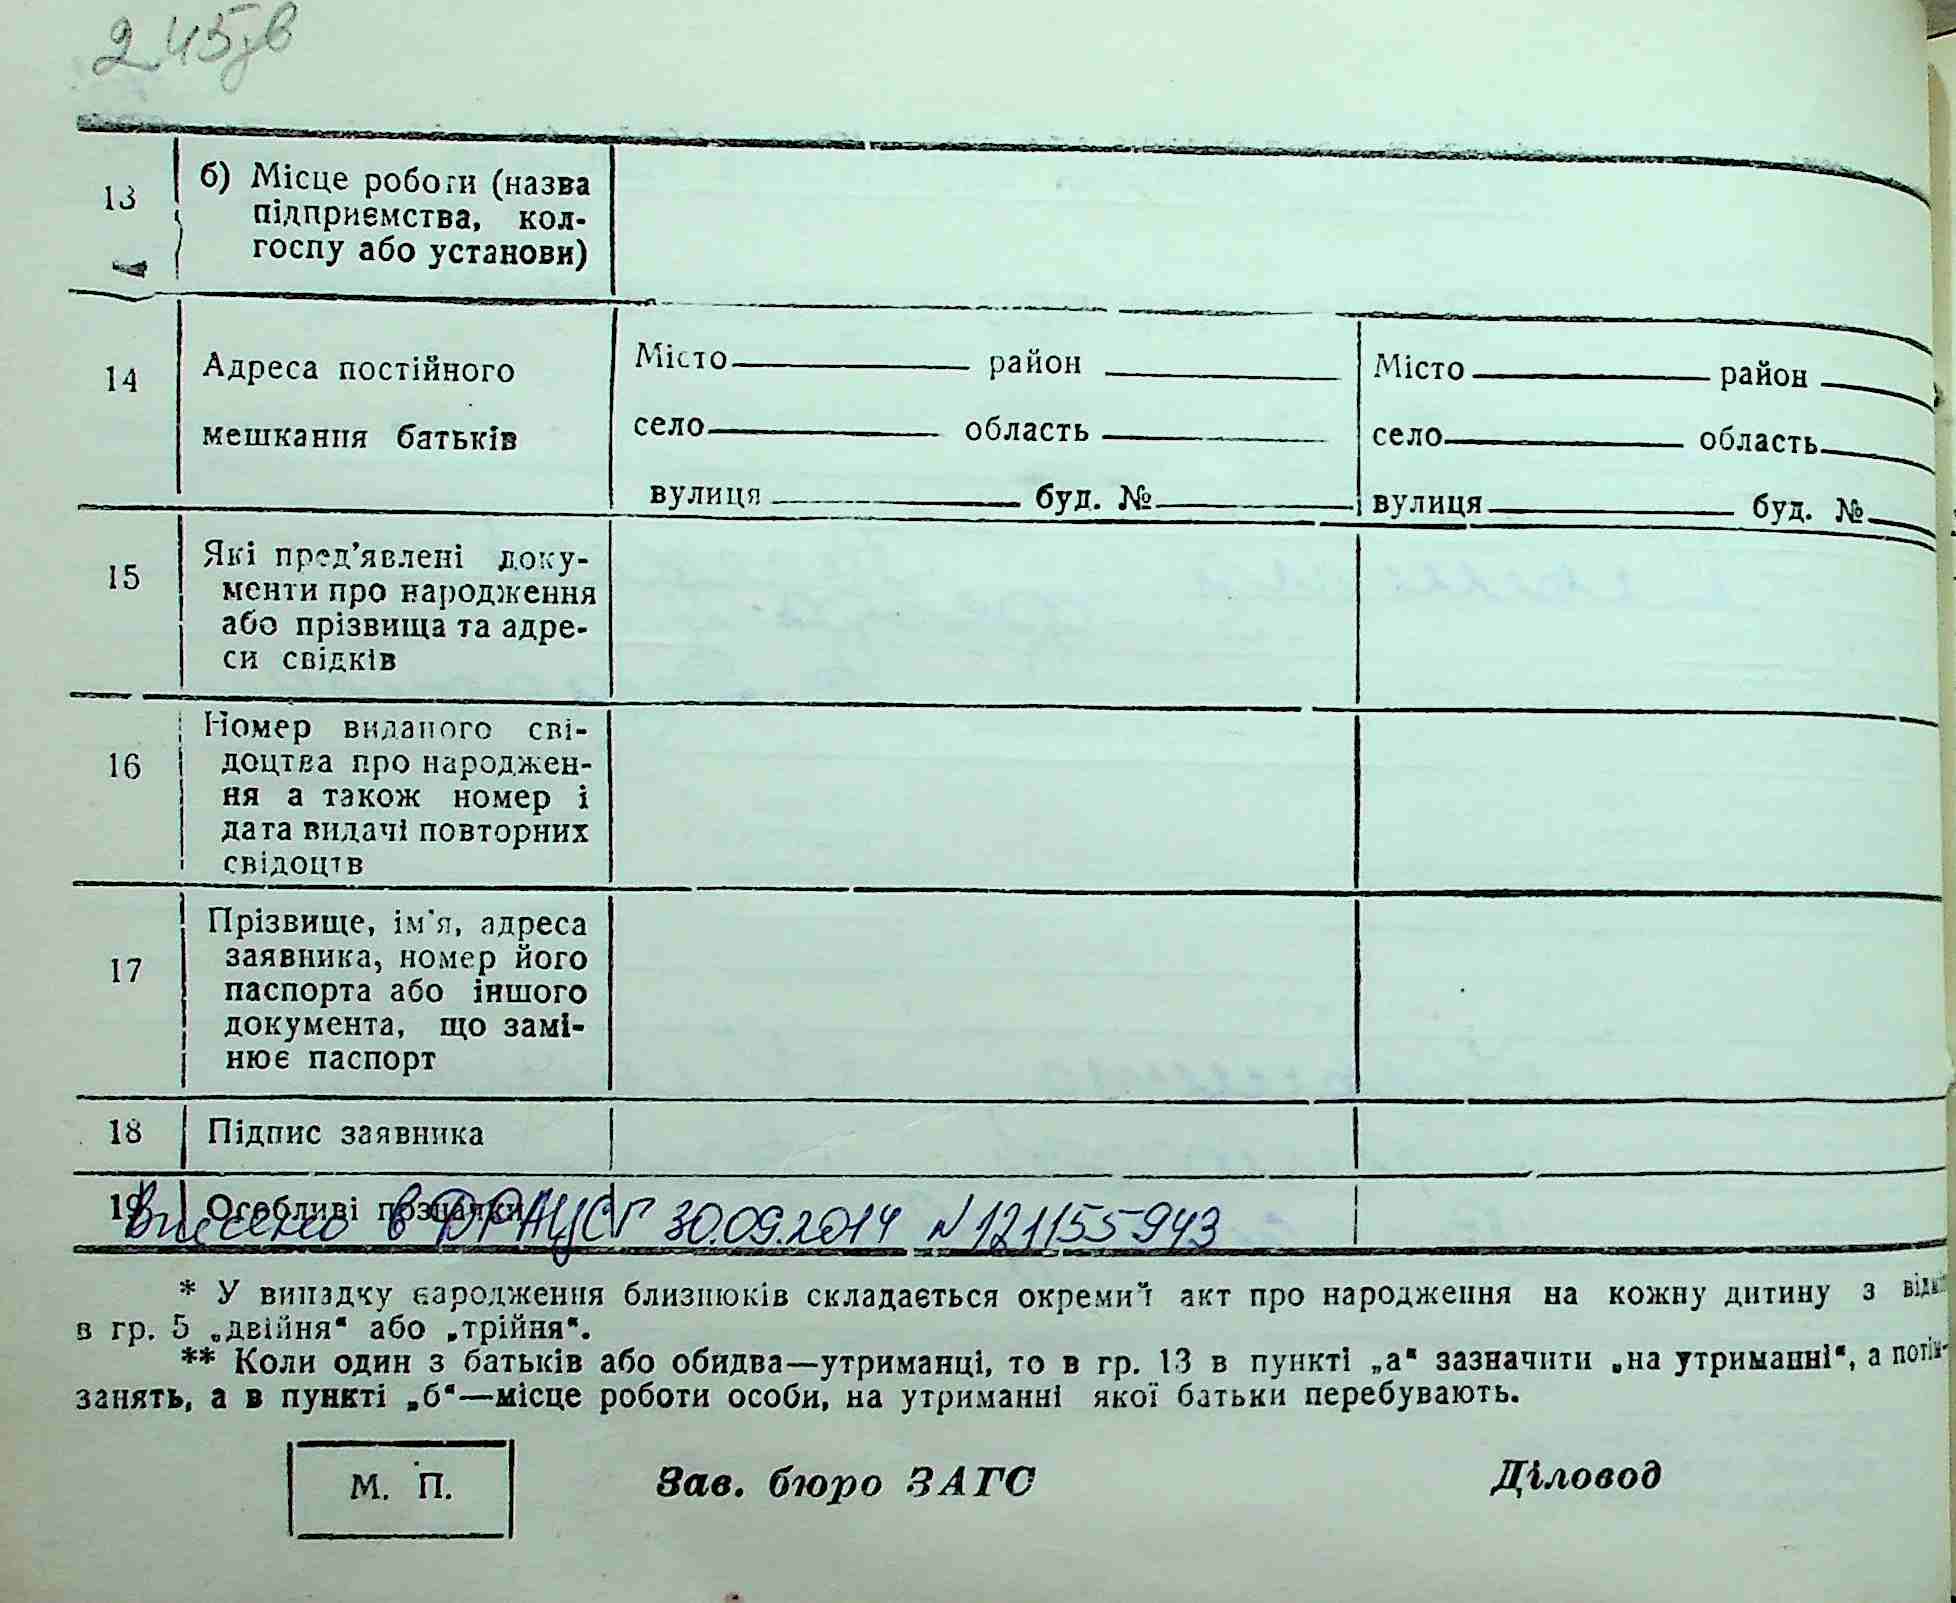 245зв
13
б) Місце роботи (назва
підприємства, кол-
госпу або установи)
14
Адреса постійного
мешкання батьків
Місто район
село область
вулиця буд. №
Місто район
село область
вулиця буд. №
15
Які пред'явлені доку-
менти про народження
або прізвища та адре-
си свідків
16
Номер виданого сві-
доцтва про народжен-
ня а також номер і
дата видачі повторних
свідоцтв
17
Прізвище, ім'я, адреса
заявника, номер його
паспорта або іншого
документа, що замі-
нює паспорт
18
Підпис заявника
19
Особливі позначки
Внесено в ДРАЦСГ 30.09.2014 N 121155943
* У випадку народження близнюків складається окремий акт про народження на кожну дитину з
в гр. 5 „двійня“ або „трійня“.
** Коли один з батьків або обидва—утриманці, то в гр. 13 в пункті „а“ зазначити „на утриманні“, а потім-
занять, а в пункті „б“—місце роботи особи, на утриманні якої батьки перебувають.
М. П.
Зав. бюро ЗАГС
Діловод